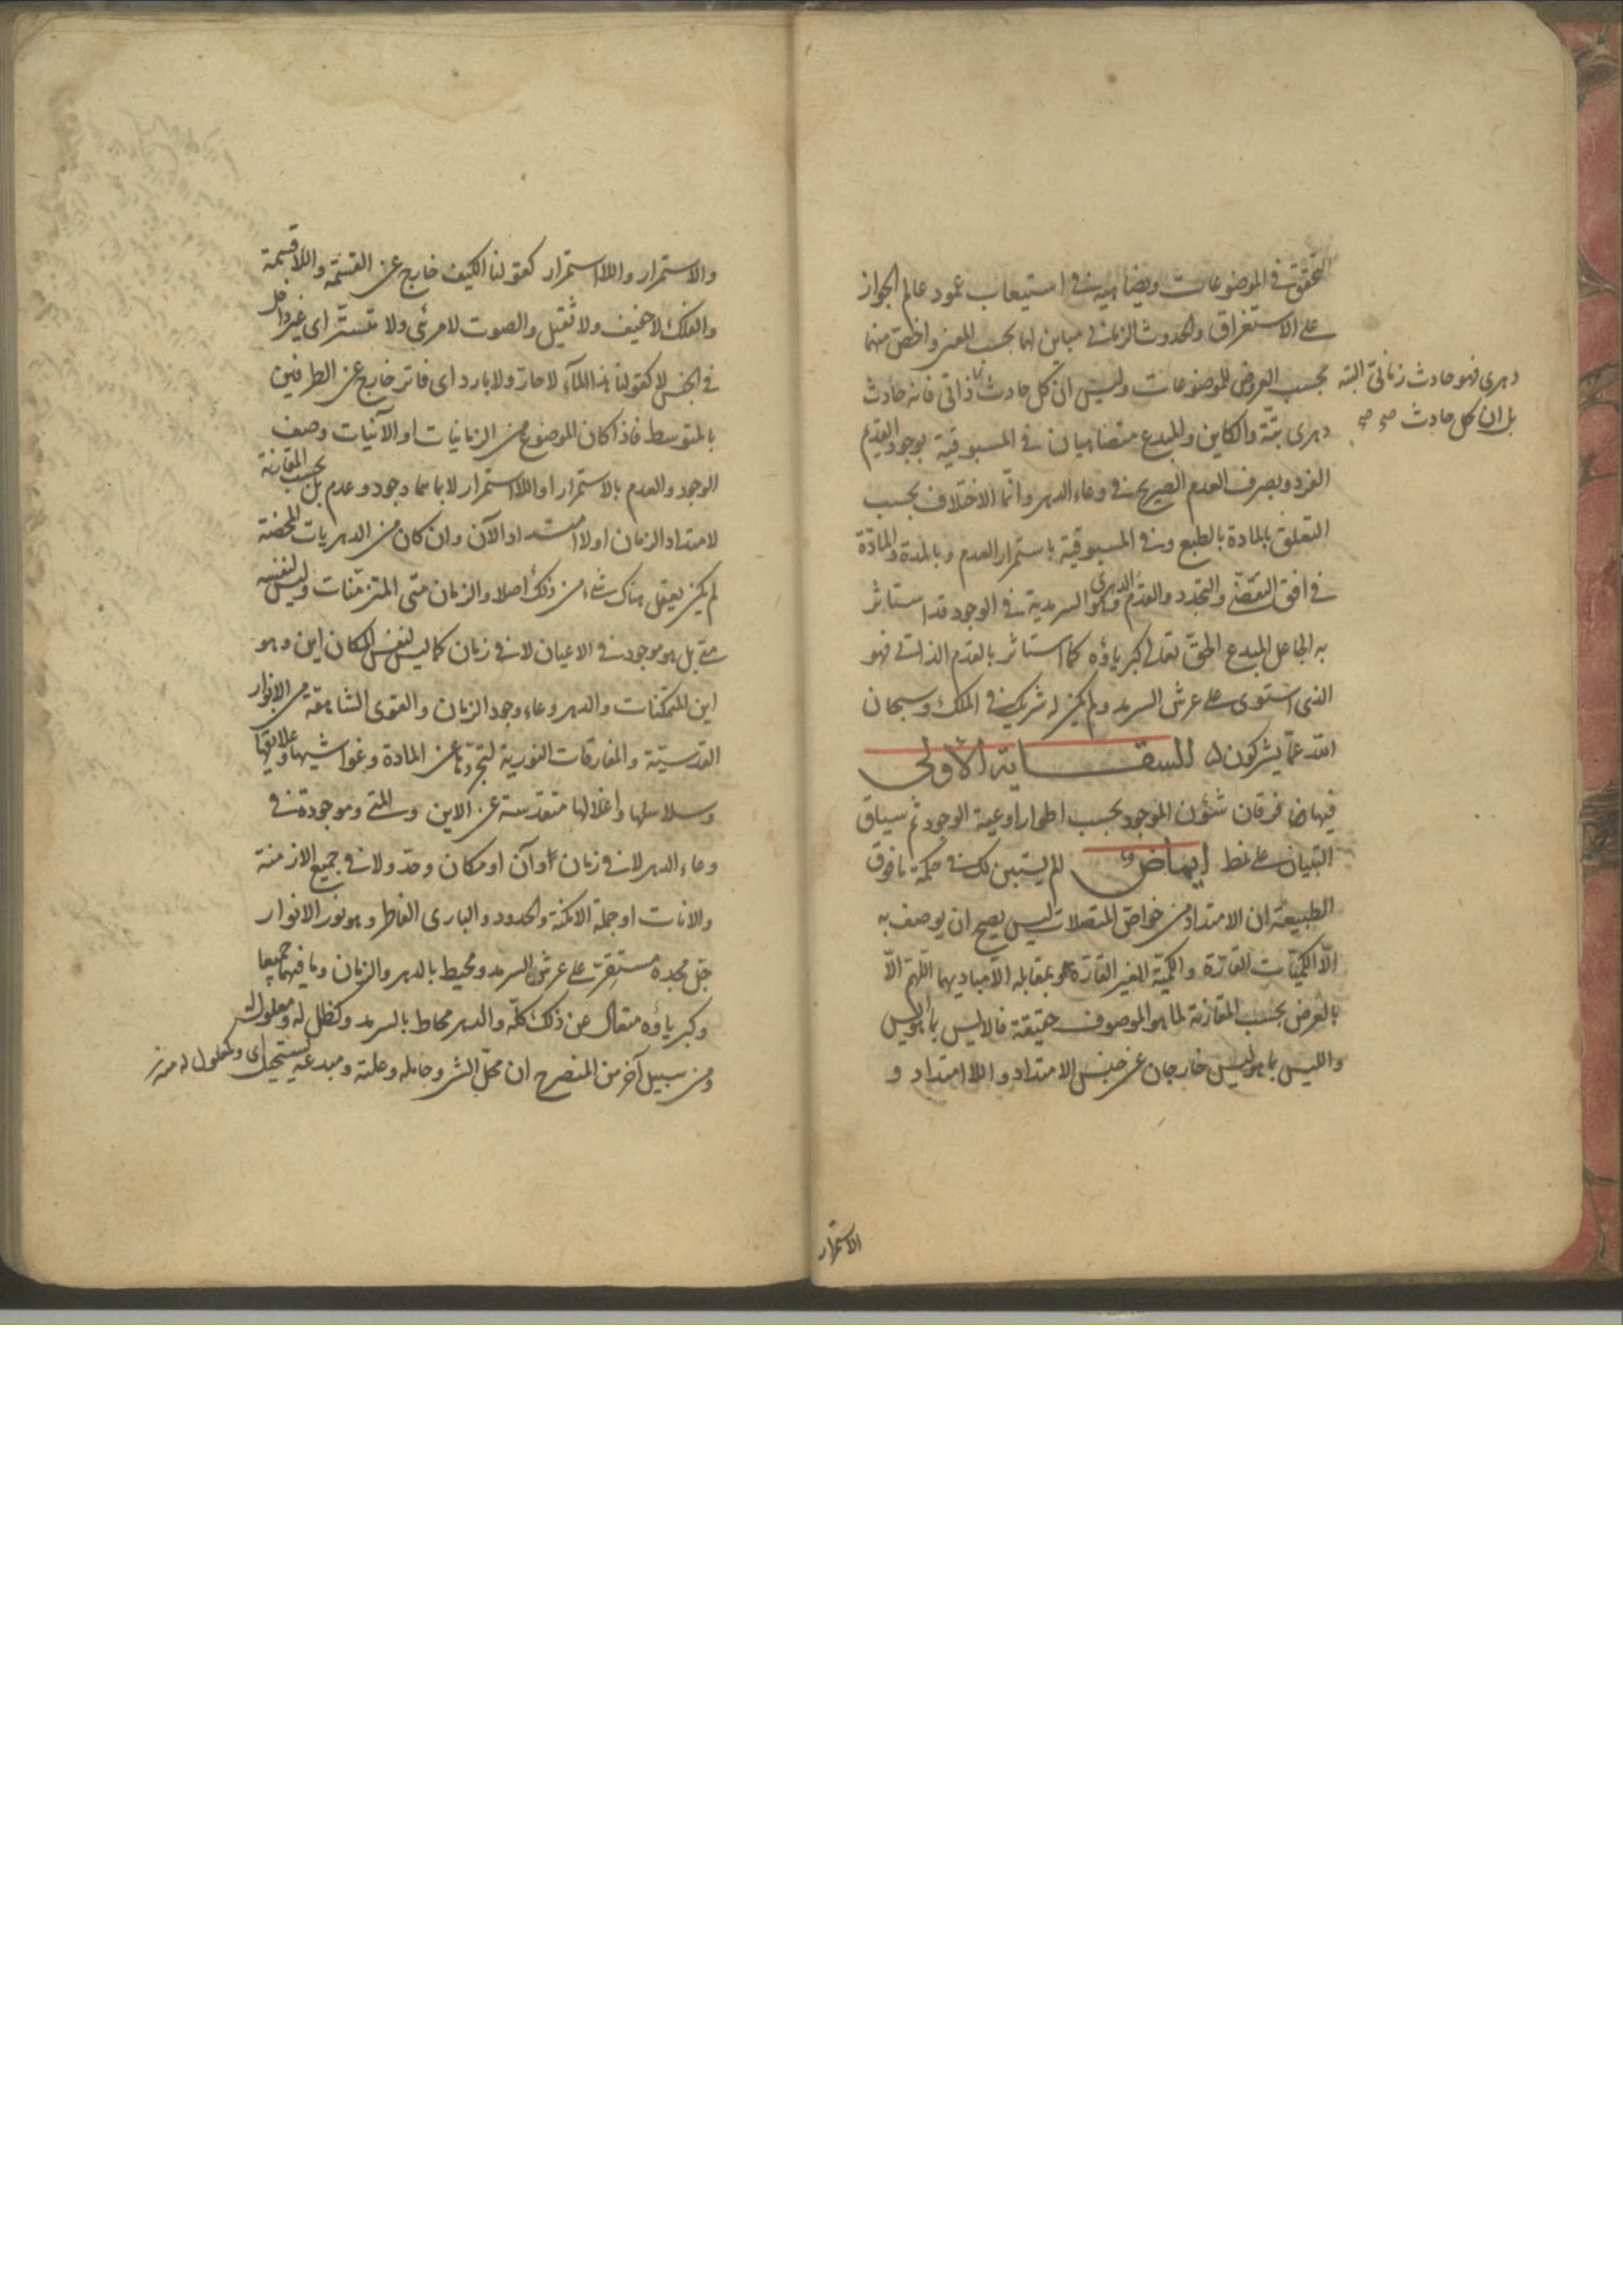 التحقق في الموضوعات ويضاهيه في استيعاب عمود عالم الجواز
على الاستغراق والحدوث الزماني مباين لهما بحسب المعنى واخص منهما
بحسب العروض للموضوعات وليس ان كل حادث ذاتي فانه حادث
دهري فهو حادث زماني البتة
بل ان كل حادث صح صح
دهري بتّة والكاين والمبدع متضاهيان في المسبوقية بوجود القديم
الفرد وبصرف العدم الصريح في وعاء الدهر وانما الاختلاف بحسب
التعلق بالمادة بالطبع وفي المسبوقية باستمرار العدم وبالمدة والمادة
في افق التقضّي والتجدد والقدم الدهري وهو السرمدية في الوجود قد استاثر
به الجاعل المبدع الحق تعالى كبرياؤه كما استاثر بالقدم الذاتي فهو
الذي استوى على عرش السرمد ولم يكن له شريك في الملك وسبحان
الله عمّا يشركون السقاية الاولى
فيها فرقان شئون الموجود بحسب اطوار اوعية الوجود ثم سياق
التبيان على نمط ايماض الم يستبن لك في حكمة ما فوق
الطبيعة ان الامتداد من خواصّ المتصلات ليس يصح ان يوصف به
الّا الكميّات القارّة والكميّة الغير القارّة او بمقابله الّا مباديهما اللّهم الّا
بالعرض بحسب المقارنة لما هو الموصوف حقيقة فالايس بما هو ايس
والليس بما هو ليس خارجان عن جنس الامتداد واللاامتداد و
الاستمرار
والاستمرار واللااستمرار كقولنا الكيف خارج عن القسمة واللاقسمة
والفلك لا خفيف ولا ثقيل والصوت لا مرئي ولا متستّر اى غير داخل
في الجنس لا كقولنا هذا الماء لا حارّ ولا بارد اى فاتر خارج عن الطرفين
بالمتوسط فاذا كان الموضوع من الزمانيات او الآنيات وصف
الوجود والعدم بالاستمرار او اللااستمرار لا بما هما وجود وعدم بل بحسب المقارنة
لامتداد الزمان او لاامتداد الآن وان كان من الدهريات المحضة
لم يكن يعقل هناك شىء من ذلك اصلا والزمان متى المتزمّنات وليس لنفسه
متى بل هو موجود في الاعيان لا في زمان كما ليس لنفس المكان اين وهو
اين المتمكنات والدهر وعاء وجود الزمان والقوى الشاهقة من الانوار
القدسيّة والمفارقات النورية لتجرّدها عن المادة وغواشيها وعلايقها
وسلاسلها واغلالها متقدسة عن الاين والمتى وموجودة في
وعاء الدهر لا في زمان او آن او مكان وحدّ ولا في جميع الازمنة
والانات او جملة الامكنة والحدود والبارى الفاطر وهو نور الانوار
جلّ مجده مستقرّ على عرش السرمد ومحيط بالدهر والزمان وما فيهما جميعا
وكبرياؤه متعال عن ذلك كلّه والدهر محاط بالسرمد وكظلّ له ومعلول
ومن سبيل آخر من المنصرح ان محلّ الشىء وحامله وعلته ومبدعه يستحيل